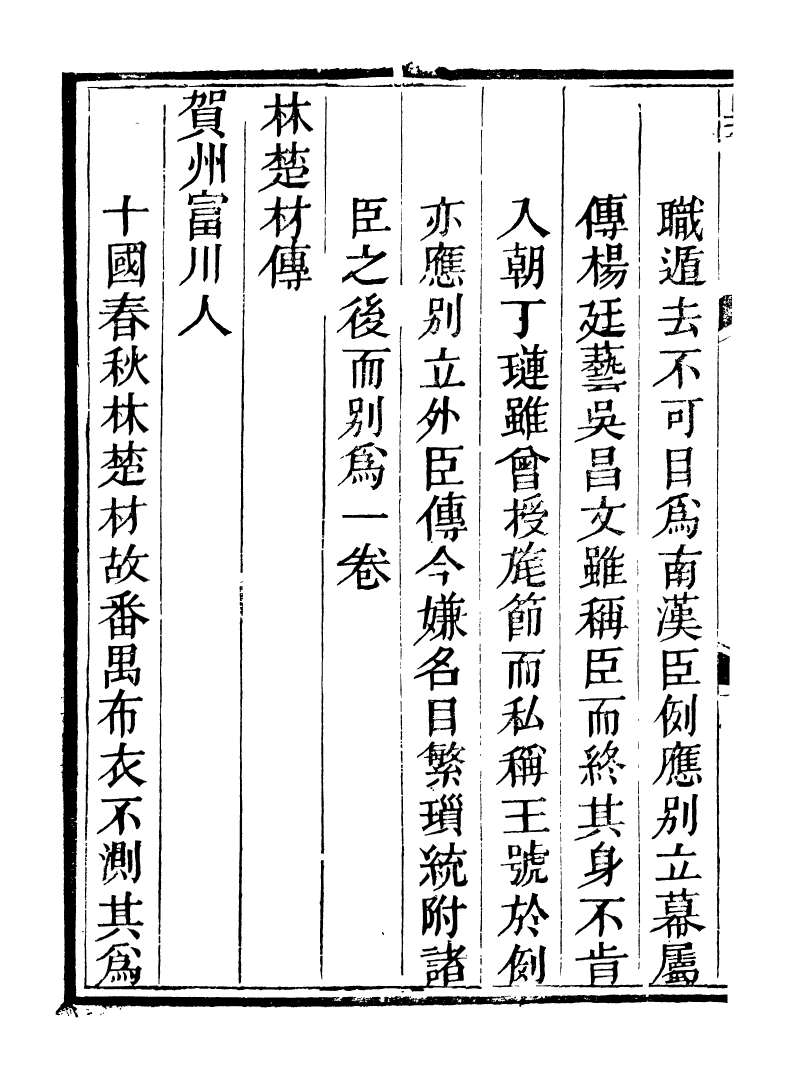 職遁去不可目爲南漢臣例應别立幕屬
傳楊廷藝吳昌文雖稱臣而終其身不肯
入朝丁璉雖曾授旄節而私稱王號於例
亦應别立外臣傳今嫌名目繁瑣統附諸
臣之後而别爲一卷
林楚材傳
賀州富川人
十國春秋林楚材故番禺布衣不測其爲